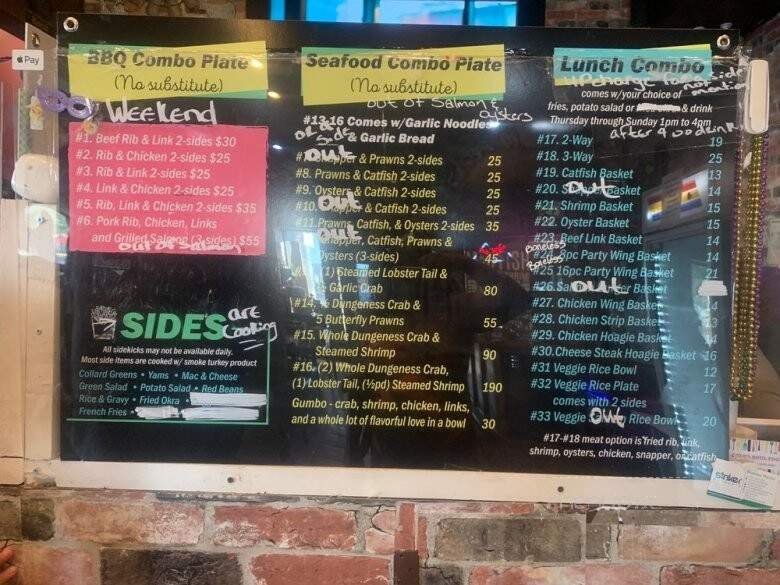 Pay
BBQ Combo Plate
(No substitute)
Weekend
#1. Beef Rib & Link 2-sides $30
#2. Rib & Chicken 2-sides $25
#3. Rib & Link 2-sides $25
#4. Link & Chicken 2-sides $25
#5. Rib, Link & Chicken 2-sides $35
#6. Pork Rib, Chicken, Links
and Grilled Salmon (3-sides) $55
out of salmon
SIDES are
Cooking
All sidekicks may not be available daily.
Most side items are cooked w/ smoke turkey product
Collard Greens • Yams • Mac & Cheese
Green Salad • Potato Salad • Red Beans
Rice & Gravy • Fried Okra
French Fries
Seafood Combo Plate
(No substitute)
out of Salmon &
oysters
#13-16 Comes w/Garlic Noodles
OR side
& Garlic Bread
out & Prawns 2-sides 25
#8. Prawns & Catfish 2-sides 25
#9. Oysters & Catfish 2-sides 25
#10. out & Catfish 2-sides 25
#11. Prawns, Catfish, & Oysters 2-sides 35
Snapper, Catfish, Prawns &
Oysters (3-sides) 45
(1) Steamed Lobster Tail &
Garlic Crab 80
#14. Dungeness Crab &
5 Butterfly Prawns 55
#15. Whole Dungeness Crab &
Steamed Shrimp 90
#16. (2) Whole Dungeness Crab,
(1) Lobster Tail, (½pd) Steamed Shrimp 190
Gumbo - crab, shrimp, chicken, links,
and a whole lot of flavorful love in a bowl 30
Lunch Combo
comes w/your choice of
fries, potato salad or & drink
Thursday through Sunday 1pm to 4pm
after 4 no drink
#17. 2-Way 19
#18. 3-Way 25
#19. Catfish Basket 13
#20. out Basket 14
#21. Shrimp Basket 15
#22. Oyster Basket 15
#23. Beef Link Basket 14
Boneless
8pc Party Wing Basket 14
Boneless
#25 16pc Party Wing Basket 21
#26. out Basket
#27. Chicken Wing Basket 14
#28. Chicken Strip Basket 13
#29. Chicken Hoagie Basket 14
#30. Cheese Steak Hoagie Basket 16
#31 Veggie Rice Bowl 12
#32 Veggie Rice Plate 17
comes with 2 sides
#33 Veggie out Rice Bowl 20
#17-#18 meat option is fried rib, link,
shrimp, oysters, chicken, snapper, or catfish